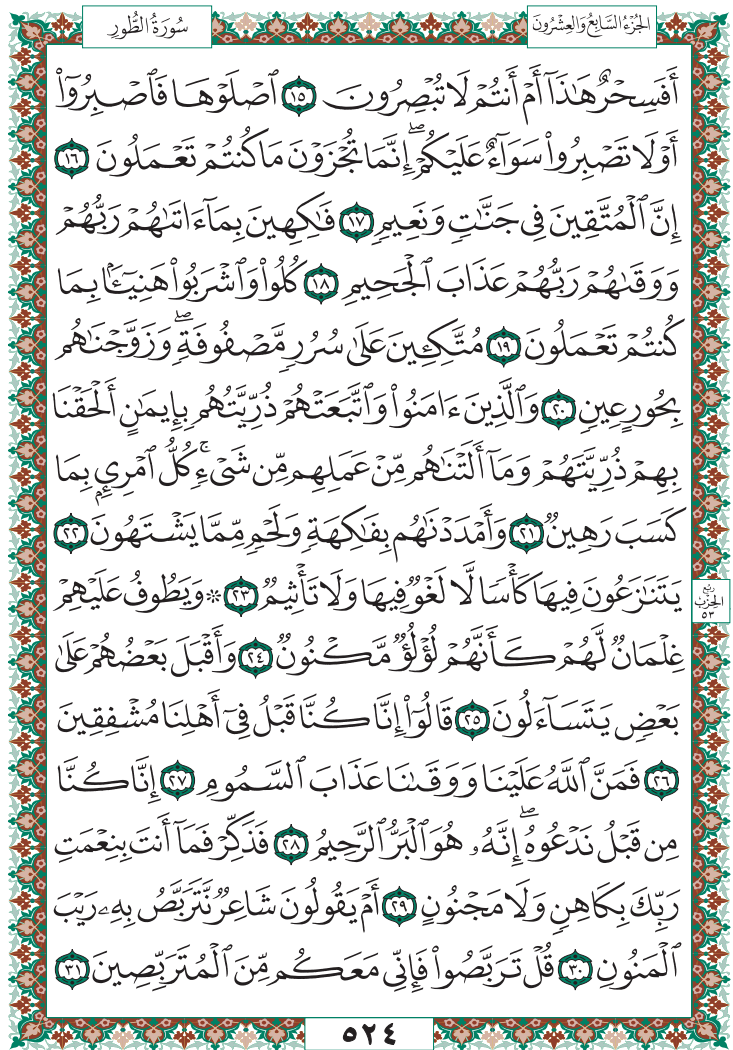 الجُزْءُ السَّابِعُ وَالعِشْرُونَ
سُورَةُ الطُّورِ
أَفَسِحْرٌ هَٰذَآ أَمْ أَنتُمْ لَا تُبْصِرُونَ ١٥ ٱصْلَوْهَا فَٱصْبِرُوٓا۟
أَوْ لَا تَصْبِرُوا۟ سَوَآءٌ عَلَيْكُمْ ۖ إِنَّمَا تُجْزَوْنَ مَا كُنتُمْ تَعْمَلُونَ ١٦
إِنَّ ٱلْمُتَّقِينَ فِى جَنَّٰتٍ وَنَعِيمٍ ١٧ فَٰكِهِينَ بِمَآ ءَاتَىٰهُمْ رَبُّهُمْ
وَوَقَىٰهُمْ رَبُّهُمْ عَذَابَ ٱلْجَحِيمِ ١٨ كُلُوا۟ وَٱشْرَبُوا۟ هَنِيٓـًٔۢا بِمَا
كُنتُمْ تَعْمَلُونَ ١٩ مُتَّكِـِٔينَ عَلَىٰ سُرُرٍ مَّصْفُوفَةٍ ۖ وَزَوَّجْنَٰهُم
بِحُورٍ عِينٍ ٢٠ وَٱلَّذِينَ ءَامَنُوا۟ وَٱتَّبَعَتْهُمْ ذُرِّيَّتُهُم بِإِيمَٰنٍ أَلْحَقْنَا
بِهِمْ ذُرِّيَّتَهُمْ وَمَآ أَلَتْنَٰهُم مِّنْ عَمَلِهِم مِّن شَىْءٍ ۚ كُلُّ ٱمْرِئٍۭ بِمَا
كَسَبَ رَهِينٌ ٢١ وَأَمْدَدْنَٰهُم بِفَٰكِهَةٍ وَلَحْمٍ مِّمَّا يَشْتَهُونَ ٢٢
يَتَنَٰزَعُونَ فِيهَا كَأْسًا لَّا لَغْوٌ فِيهَا وَلَا تَأْثِيمٌ ٢٣ ۞ وَيَطُوفُ عَلَيْهِمْ
غِلْمَانٌ لَّهُمْ كَأَنَّهُمْ لُؤْلُؤٌ مَّكْنُونٌ ٢٤ وَأَقْبَلَ بَعْضُهُمْ عَلَىٰ
بَعْضٍ يَتَسَآءَلُونَ ٢٥ قَالُوٓا۟ إِنَّا كُنَّا قَبْلُ فِىٓ أَهْلِنَا مُشْفِقِينَ
٢٦ فَمَنَّ ٱللَّهُ عَلَيْنَا وَوَقَىٰنَا عَذَابَ ٱلسَّمُومِ ٢٧ إِنَّا كُنَّا
مِن قَبْلُ نَدْعُوهُ ۖ إِنَّهُۥ هُوَ ٱلْبَرُّ ٱلرَّحِيمُ ٢٨ فَذَكِّرْ فَمَآ أَنتَ بِنِعْمَتِ
رَبِّكَ بِكَاهِنٍ وَلَا مَجْنُونٍ ٢٩ أَمْ يَقُولُونَ شَاعِرٌ نَّتَرَبَّصُ بِهِۦ رَيْبَ
ٱلْمَنُونِ ٣٠ قُلْ تَرَبَّصُوا۟ فَإِنِّى مَعَكُم مِّنَ ٱلْمُتَرَبِّصِينَ ٣١
رُبْع
الحِزْب
٥٣
٥٢٤